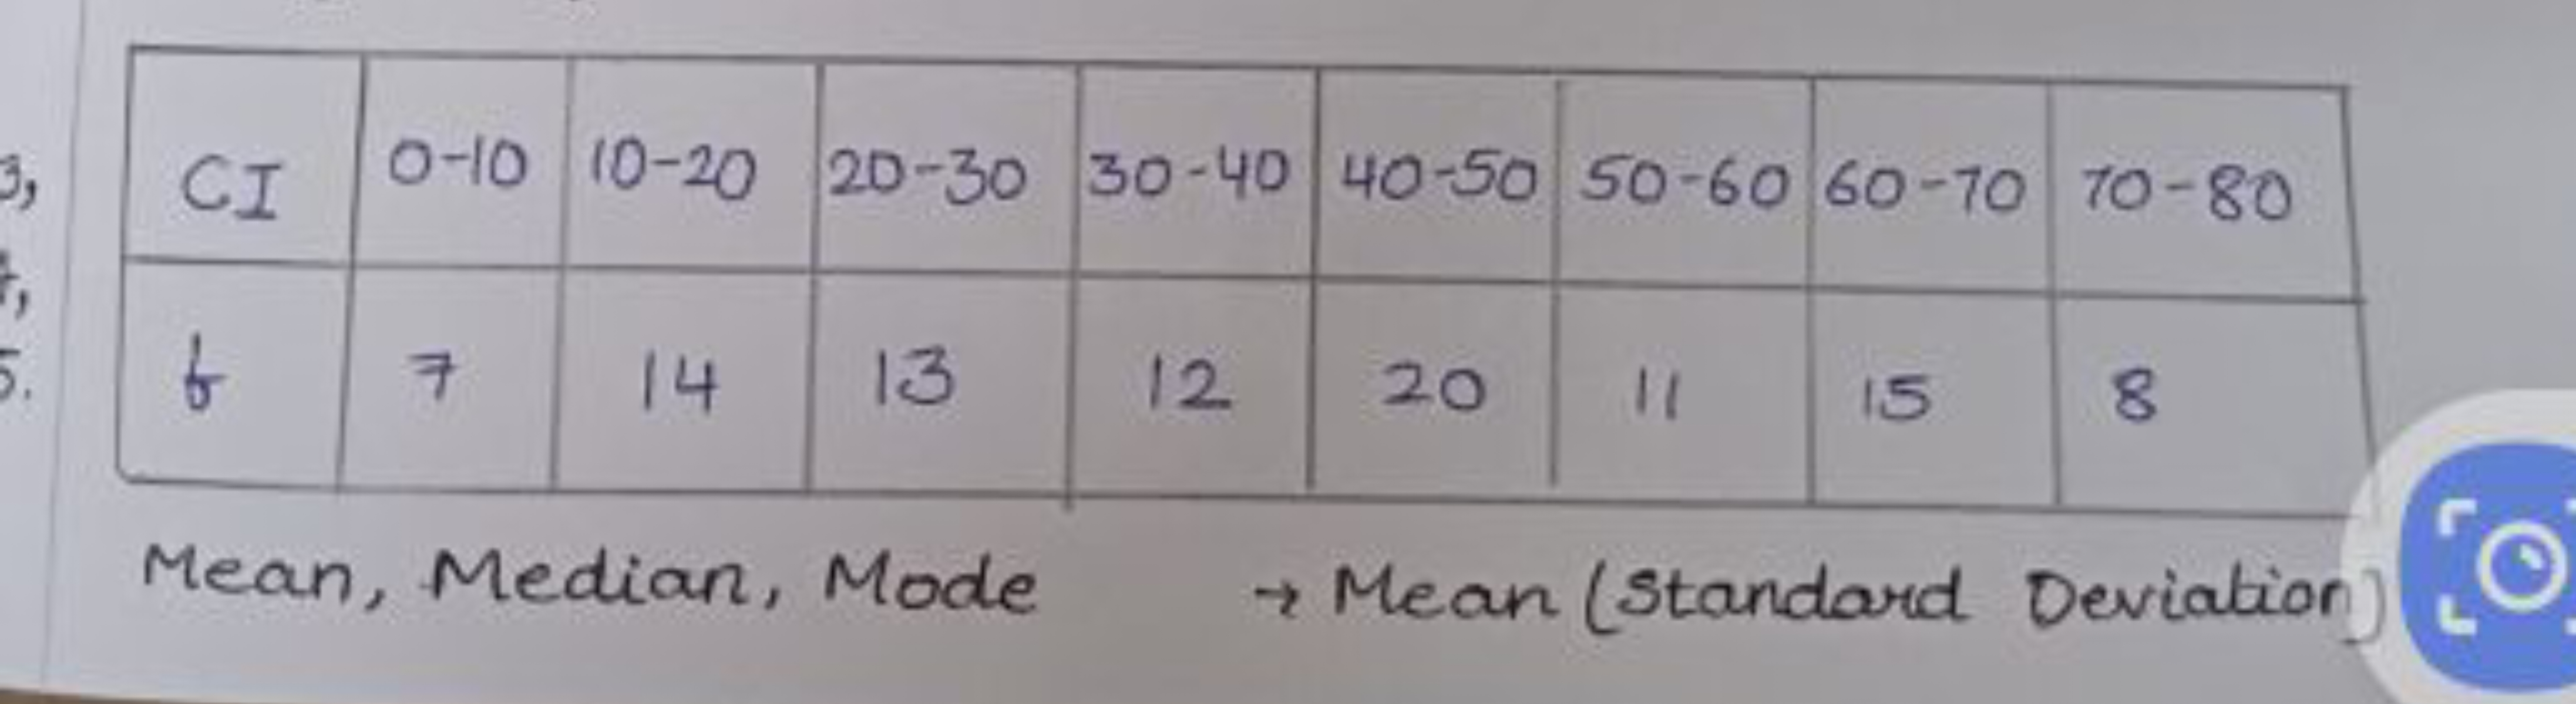 3,
5.
CI 0-10 10-20 20-30 30-40 40-50 50-60 60-70 70-80
f 7 14 13 12 20 11 15 8
Mean, Median, Mode → Mean (Standard Deviation)